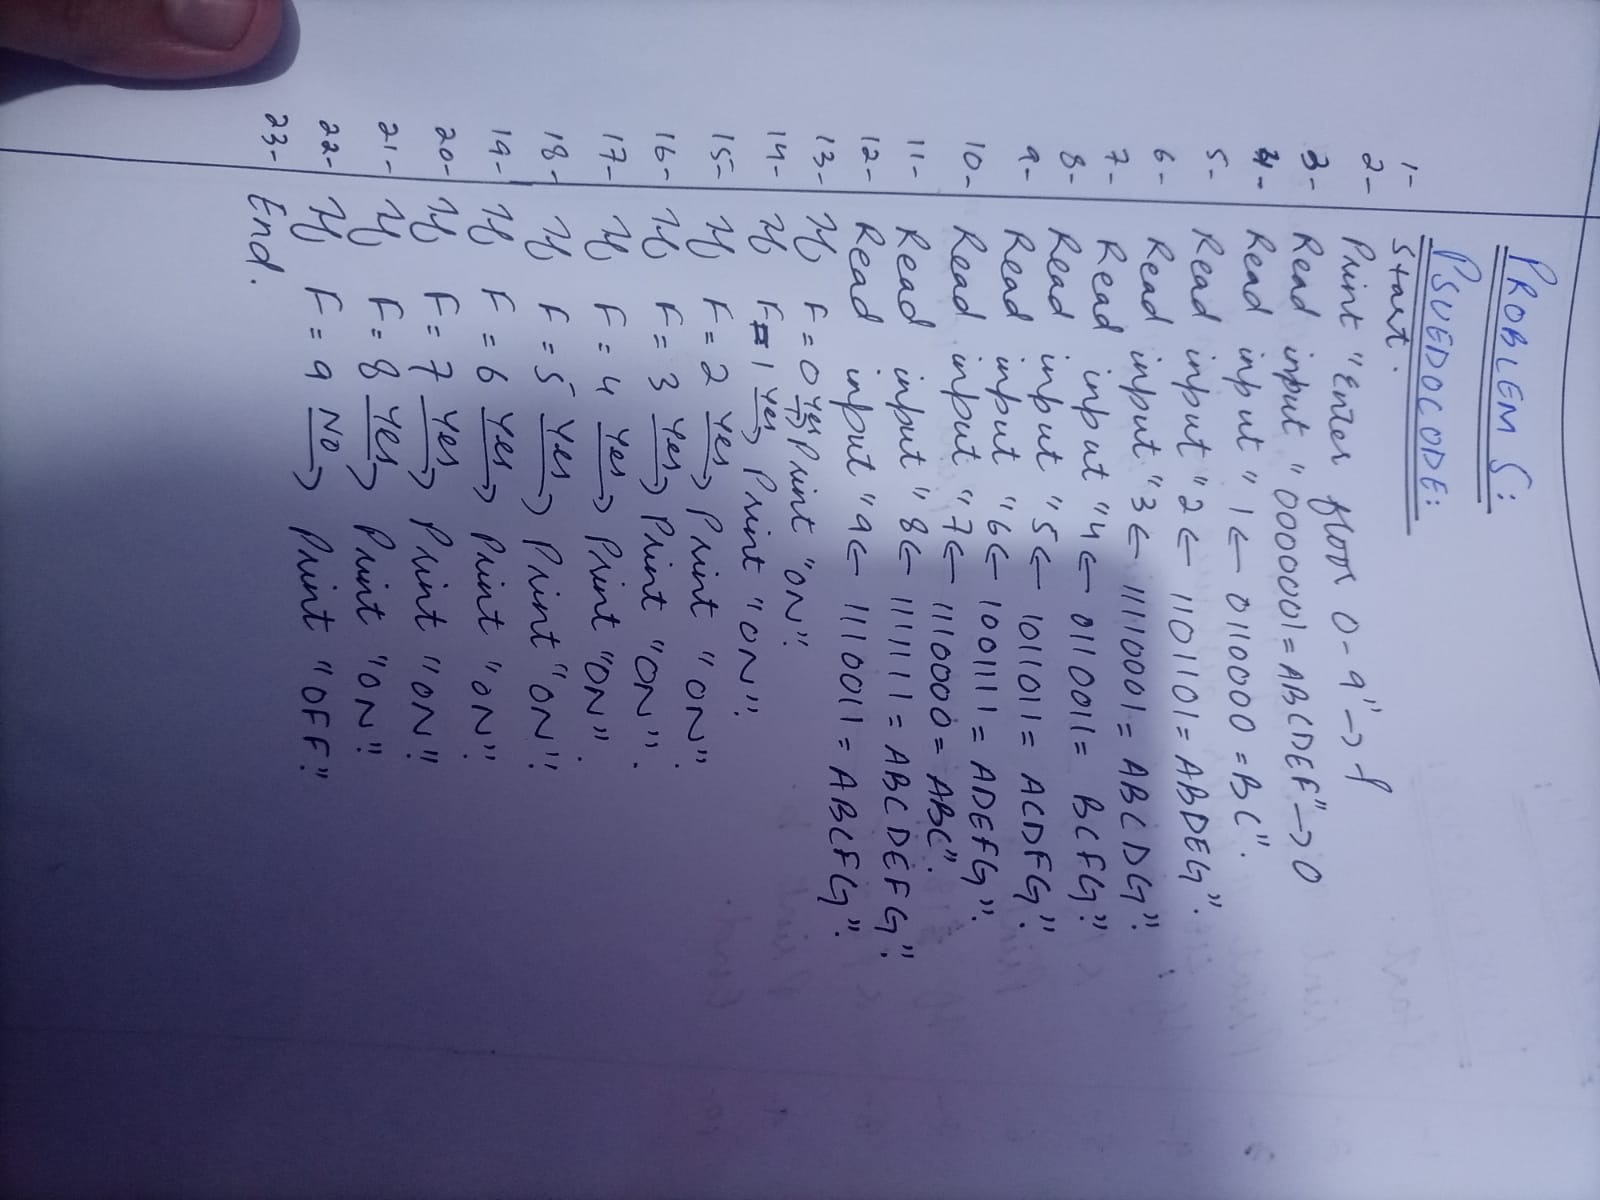 PROBLEM 5:
PSUEDOCODE:
1- Start.
2- Print "Enter floor 0-9" → f
3- Read input "0000001 = ABCDEF" → 0
4- Read input "1 ← 0110000 = BC".
5- Read input "2 ← 1101101 = ABDEG".
6- Read input "3 ← 1111001 = ABCDG".
7- Read input "4 ← 0110011 = BCFG".
8- Read input "5 ← 1011011 = ACDFG".
9- Read input "6 ← 1001111 = ADEFG".
10- Read input "7 ← 1110000 = ABC".
11- Read input "8 ← 1111111 = ABCDEFG".
12- Read input "9 ← 1110011 = ABCFG".
13- If F = 0 Yes→ Print "ON".
14- If F = 1 Yes→ Print "ON".
15- If F = 2 Yes→ Print "ON".
16- If F = 3 Yes→ Print "ON".
17- If F = 4 Yes→ Print "ON".
18- If F = 5 Yes→ Print "ON".
19- If F = 6 Yes→ Print "ON".
20- If F = 7 Yes→ Print "ON".
21- If F = 8 Yes→ Print "ON".
22- If F = 9 No→ Print "OFF".
23- End.